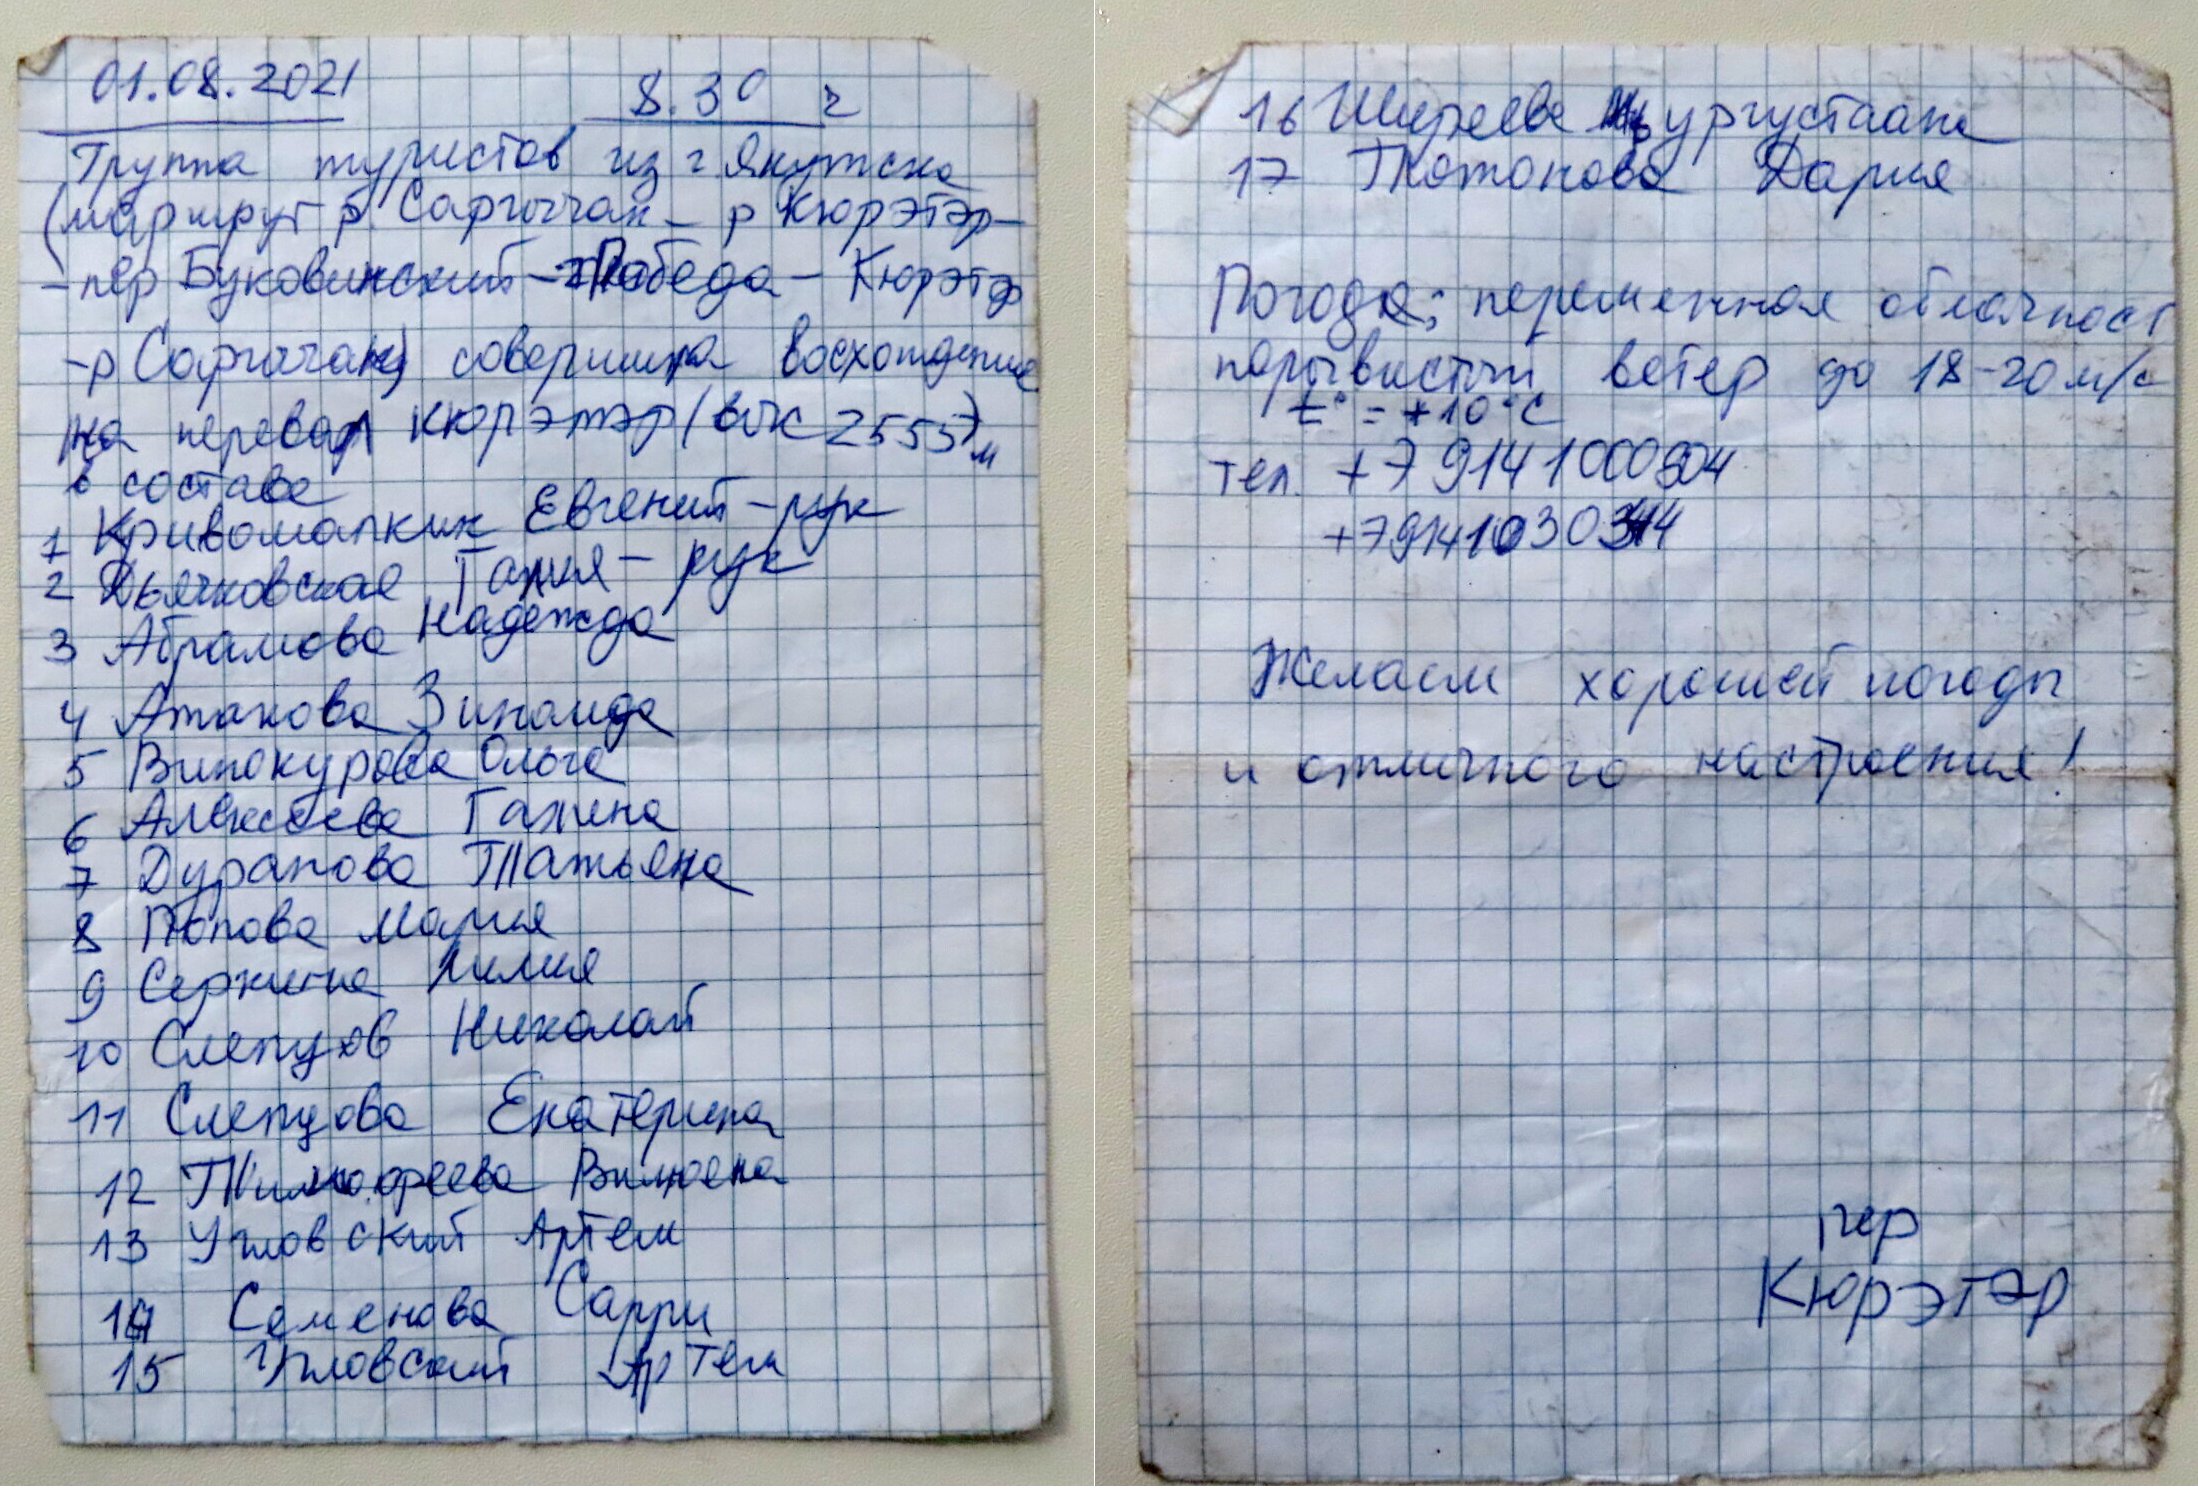 01.08.2021 8.30 ч
Группа туристов из г. Якутска
(маршрут р. Саргычан – р Кюрэтэр –
– пер Буковинский – Победа – Кюрэтэр
– р Саргычан) совершила восхождение
на перевал Кюрэтэр (в/к 2555) м
в составе
1 Кривошапкин Евгений – рук
2 Дьячковская Галия – рук
3 Абрамова Надежда
4 Атакова Зинаида
5 Винокурова Ольга
6 Алексеева Галина
7 Дуранова Татьяна
8 Попова Мария
9 Серкина Лилия
10 Слепцов Николай
11 Слепцова Екатерина
12 Тимофеева Вилюена
13 Угловский Артем
14 Семенова Сарри
15 Угловский Артем
16 Ширяева Ньургустаана
17 Тотонова Дария
Погода: переменная облачност
порывистый ветер до 18-20 м/с
t° = +10°C
тел. +7 914 1000804
+7914 1030344
Желаем хорошей погоды
и отличного настроения!
пер
Кюрэтэр